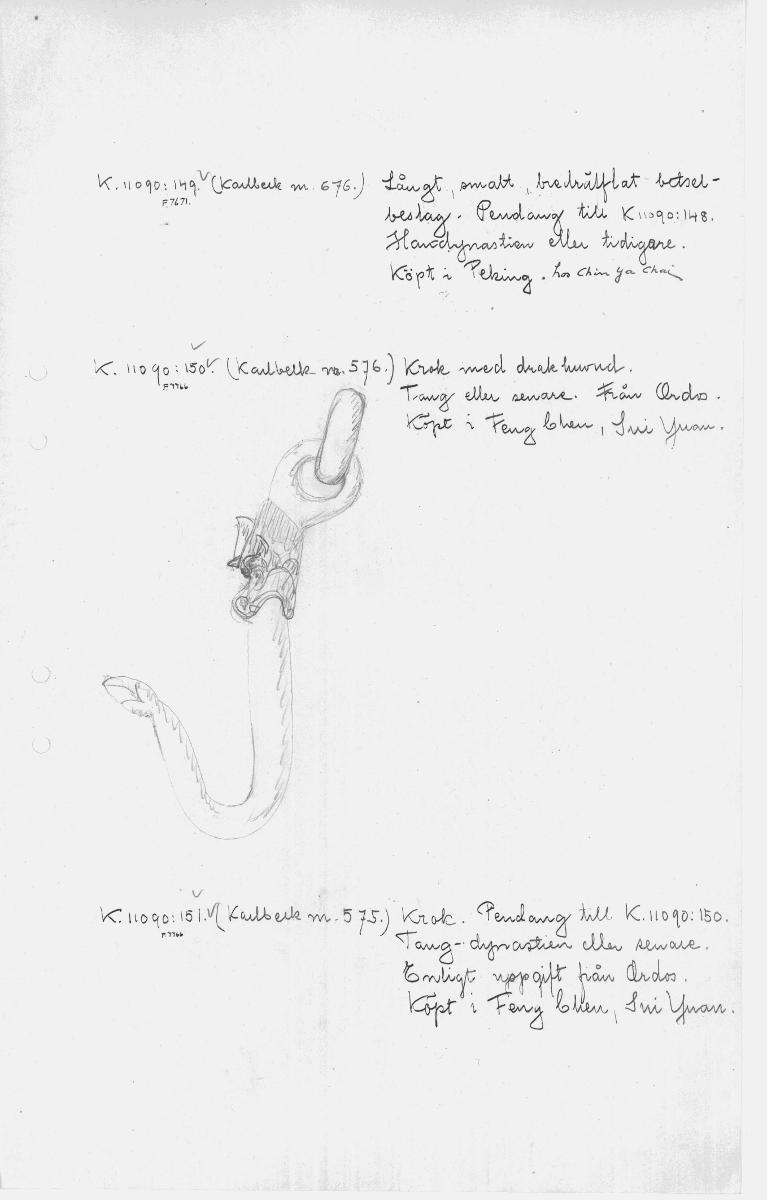 K. 11090:149. (Karlbeck nr. 676.) Långt, smalt, bredvälflat betsel-
F 7671.
beslag. Pendang till K 11090:148.
Handynastien eller tidigare.
Köpt i Peking. hos Chin Ya Chai
K. 11090:150. (Karlbeck nr. 576.) Krok med drakhuvud.
F 7766
Tang eller senare. Från Ordos.
Köpt i Feng Chen, Sui Yuan.
K. 11090:151. (Karlbeck nr. 575.) Krok. Pendang till K. 11090:150.
F 7766
Tang-dynastien eller senare.
Enligt uppgift från Ordos.
Köpt i Feng Chen, Sui Yuan.